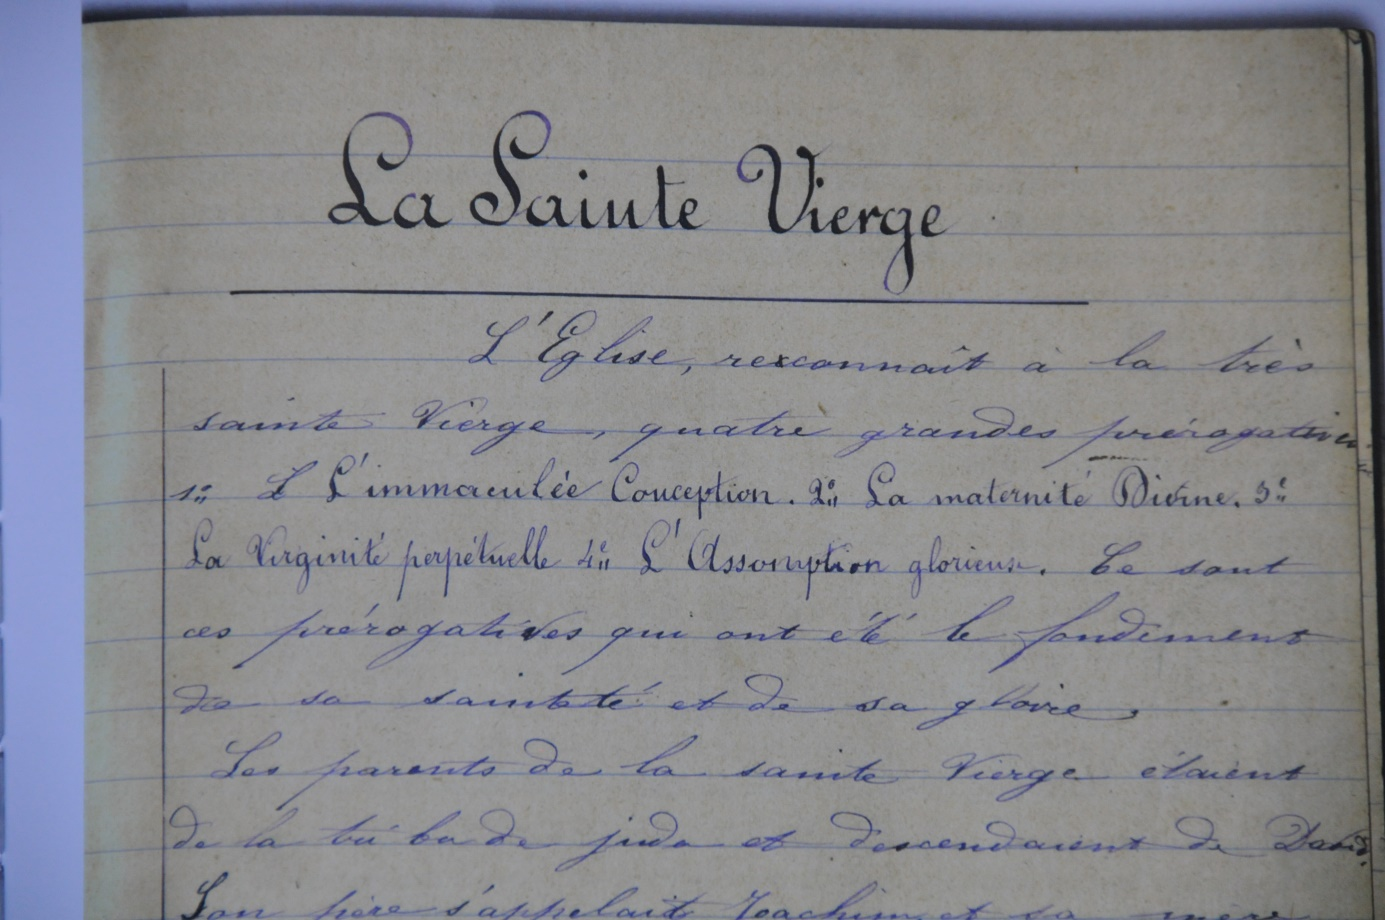 La Sainte Vierge
L'Eglise, reconnaît à la très
sainte Vierge, quatre grandes prérogatives
1º L L'immaculée Conception. 2º La maternité Divine. 3º
La Virginité perpétuelle 4º L'Assomption glorieuse. Ce sont
ces prérogatives qui ont été le fondement
de sa sainteté et de sa gloire.
Les parents de la sainte Vierge étaient
de la tribu de juda et descendaient de David.
Son père s'appelait Joachim et sa mère